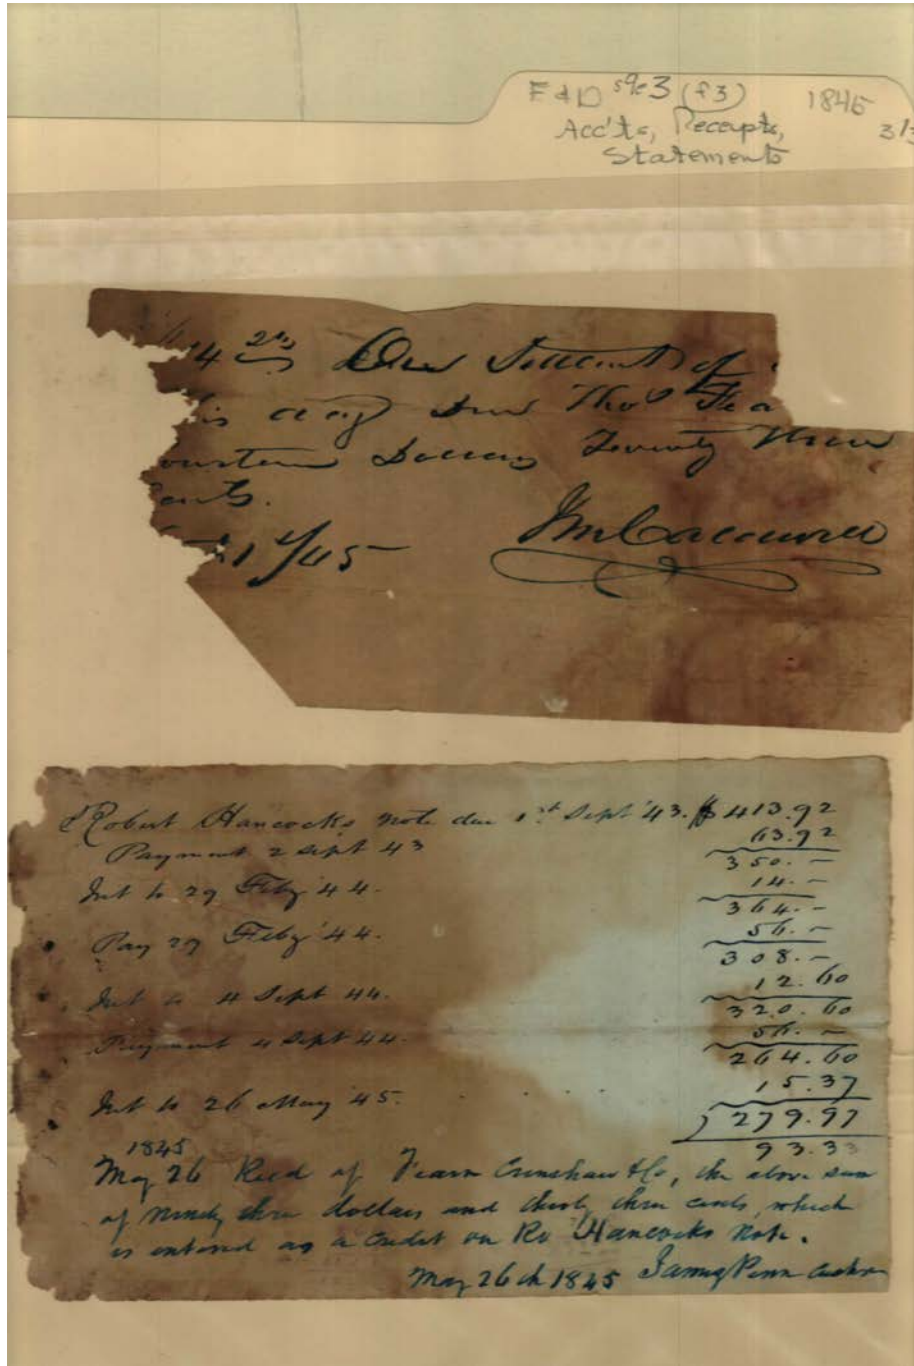 F & D s9c3 (f3) 1845
Acc'ts, Receipts, 3/3
Statements
14 Due of
is day due Thos Fea
Dollars Seventy Three
ents.
1st/45
Robert Hancocks note due 1st Sept '43. $413.92
Payment 2 Sept 43 63.92
350.-
Int to 29 Feby '44. 14.-
364.-
Pay 29 Feby '44. 56.-
308.-
Int to 4 Sept 44. 12.60
320.60
Payment 4 Sept 44. 56.-
264.60
Int to 26 May '45. . . . . 15.37
) 279.97
1845 93.33
May 26 Recd of Fearn Crenshaw & Co, the above sum
of ninety three dollars and thirty three cents, which
is entered as a Credit on Ro Hancocks note.
May 26th 1845 James Penn Cashr